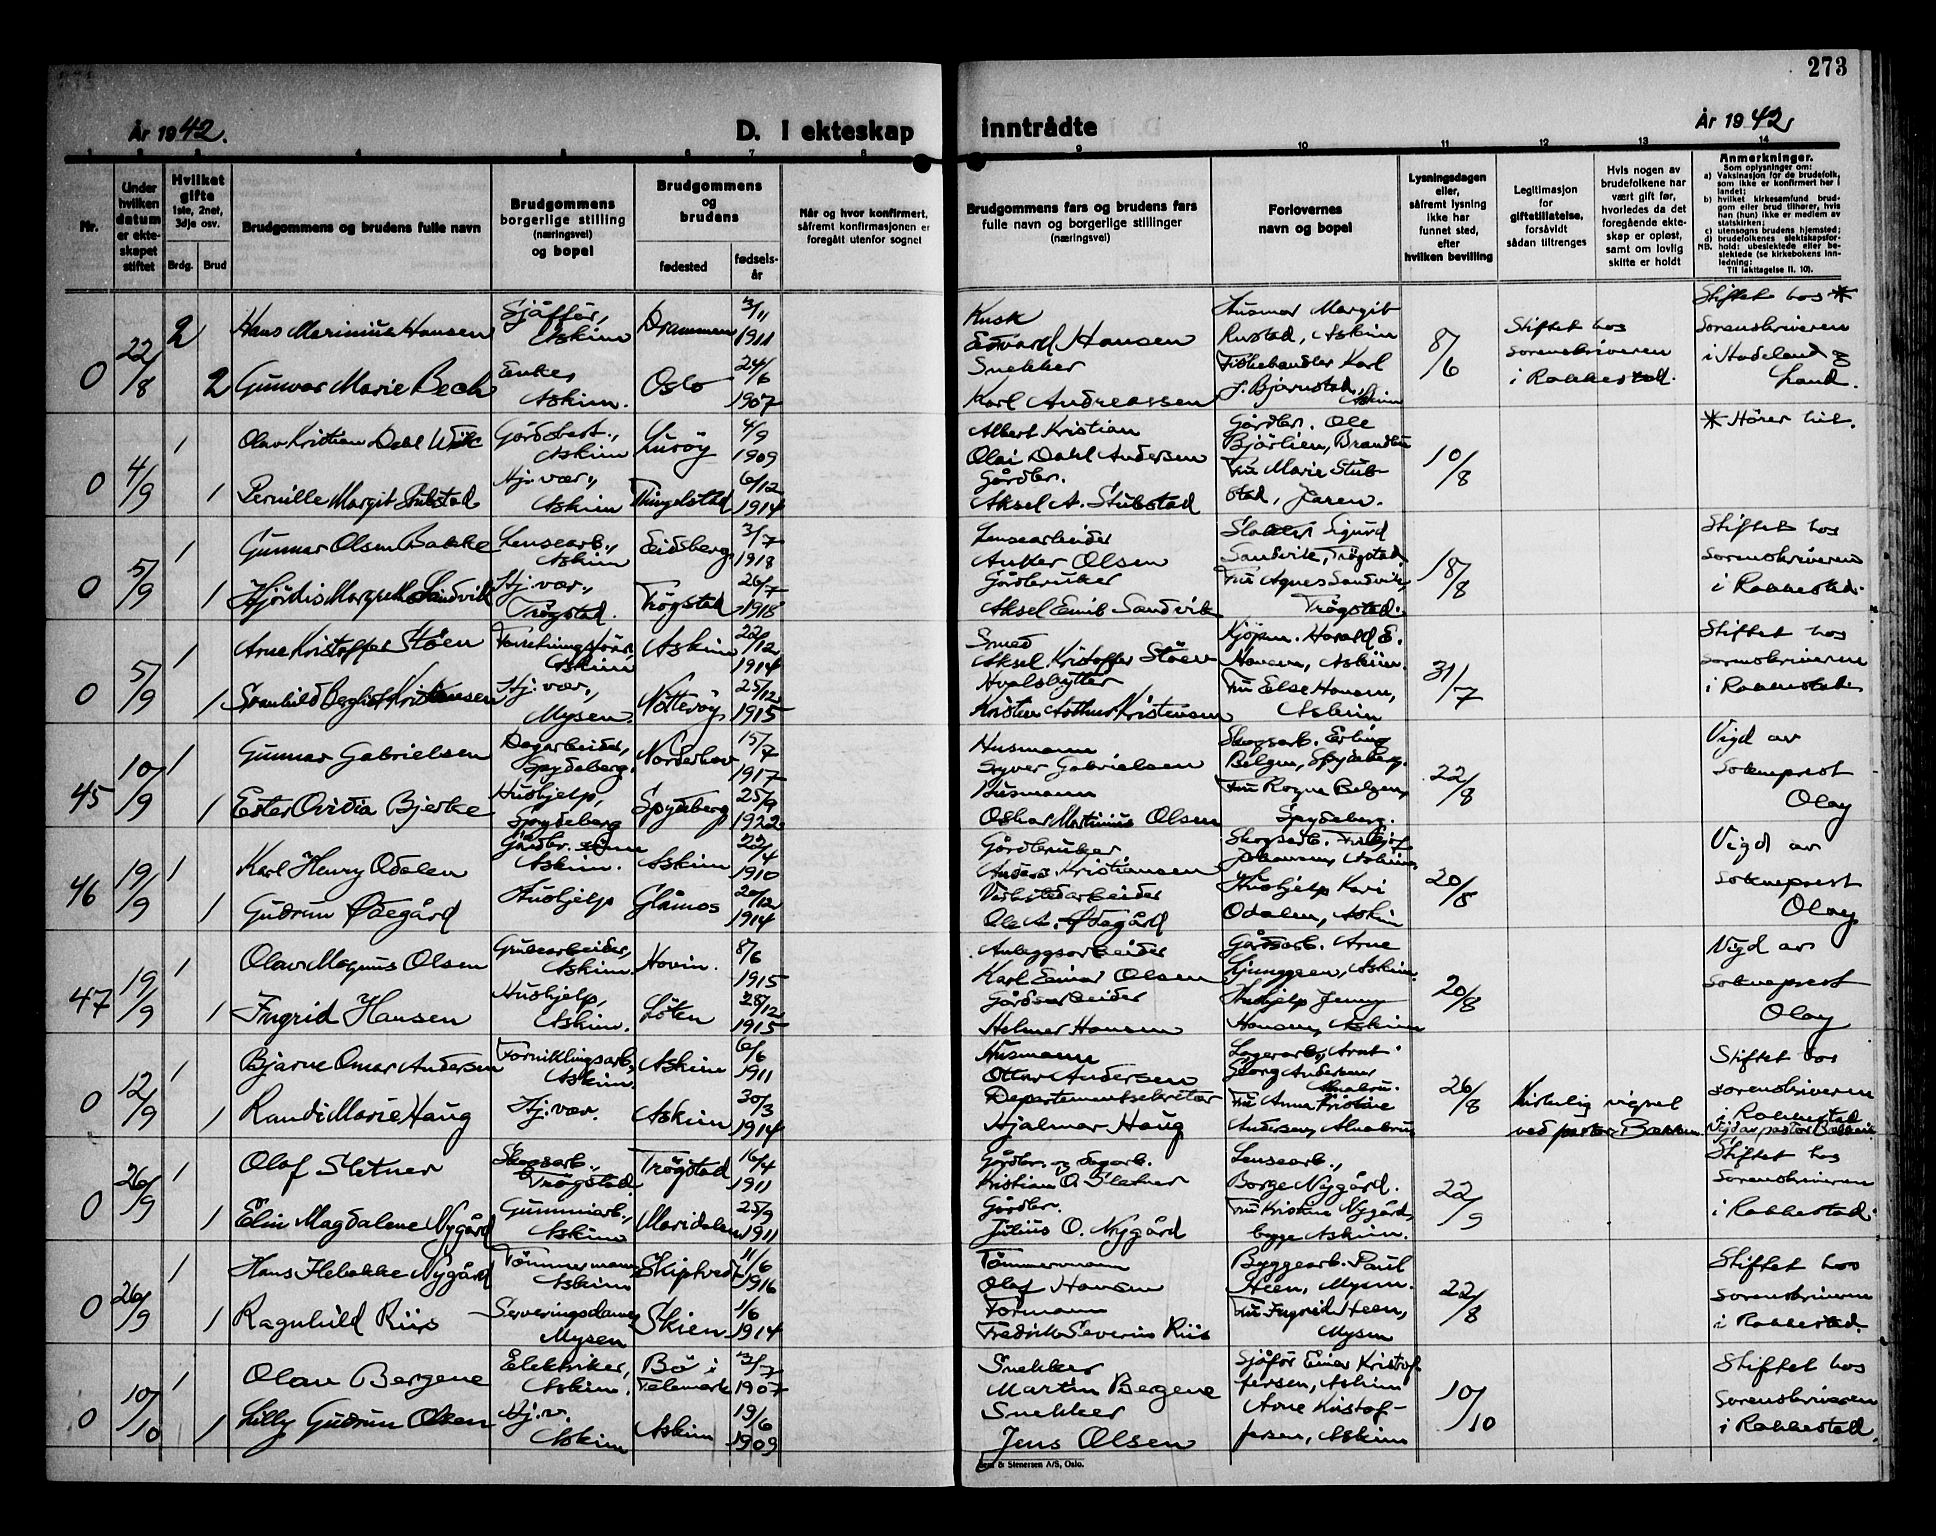 273
År 1942.
D. I ekteskap
inntrådte
År 1942
1 2 3 4 5 6 7 8
9 10 11 12 13 14
Nr.
Under hvilken datum er ekteskapet stiftet
Hvilket gifte 1ste, 2net, 3dje osv.
Brdg. Brud
Brudgommens og brudens fulle navn
Brudgommens borgerlige stilling (næringsvei) og bopel
Brudgommens og brudens
fødested
fødselsår
Når og hvor konfirmert, såfremt konfirmasjonen er foregått utenfor sognet
Brudgommens fars og brudens fars fulle navn og borgerlige stillinger (næringsvei)
Forlovernes navn og bopel
Lysningsdagen eller, såfremt lysning ikke har funnet sted, efter hvilken bevilling
Legitimasjon for giftetillatelse, forsåvidt sådan tiltrenges
Hvis nogen av brudefolkene har vært gift før, hvorledes da det foregående ekteskap er opløst, samt om lovlig skifte er holdt
Anmerkninger.
Som oplysninger om:
a) Vaksinasjon for de brudefolk, som ikke er konfirmert her i landet;
b) hvilket kirkesamfund brudgom eller brud tilhører, hvis han (hun) ikke er medlem av statskirken;
c) utensogns brudens hjemsted;
d) brudefolkenes slektskapsforhold: ubeslektede eller beslektede (se kirkebokens innledning;
NB. Til iakttagelse II. 10).
0 22/8 2 Hans Marinius Hansen Sjåffør, Askim Drammen 3/11 1911
2 Gunvor Marie Bech Enke, Askim. Oslo 24/6 1907
Kusk
Edvard Hansen
Snekker
Karl Andreassen
Margit Rustad, Askim
Fiskehandler Karl J. Bjørnstad, Askim
8/6
Stiftet hos sorenskriveren i Rakkestad.
Stiftet hos * Sorenskriveren i Hadeland og Land.
0 4/9 1 Olav Kristian Dahl Gårdsbest., Askim Lurøy 4/9 1909
1 Pernille Margit Stubstad Hj. vær., Askim Tingelstad 6/12 1914
Albert Kristian
Olai Dahl Andersen
Gårdbr.
Aksel A. Stubstad
Gårdbr. Ole Bjørlien, Brandbu
Fru Marie Stubstad, Jaren.
10/8
* Hører hit.
0 5/9 1 Gunnar Olsen Bakke Lensearb., Askim Eidsberg 3/7 1918
1 Hjördis Sandvik Hj. vær., Trøgstad. Trøgstad 26/7 1918
Lensearbeider
Anker Olsen
Gårdbruker
Aksel Emil Sandvik
Sigurd Sandvik, Trøgstad.
Fru Agnes Sandvik, Trøgstad.
18/8
Stiftet hos sorenskriveren i Rakkestad.
0 5/9 1 Arne Kristoffer Støen Askim Askim 22/12 1914
1 Svanhild Kristensen Hj. vær., Mysen. Nøtterøy 25/12 1915
Smed
Aksel Kristoffer Støen
Hvalskytter
Kristian Arthur Kristensen
Kjøpm. Harald E. Hansen, Askim.
Fru Else Hansen, Askim
31/7
Stiftet hos sorenskriveren i Rakkestad
45 10/9 1 Gunnar Gabrielsen Dagarbeider, Spydeberg. Norderhov 15/7 1917
1 Ester Ovidia Bjerke Hushjelp, Spydeberg Spydeberg 25/9 1922
Husmann
Syver Gabrielsen
Husmann
Oskar Martinius Olsen
Skogsarb. Erling Belgen, Spydeberg.
Fru Ragna Belgen, Spydeberg.
22/8
Vigd av Sokneprest Olay
46 19/9 1 Karl Henry Odalen Gårdbr. Askim. Askim 22/4 1910
1 Gudrun Ødegård Hushjelp Glåmos 20/12 1914
Gårdbruker
Anders Kristiansen
Verkstedarbeider
Ole A. Ødegård
Skogsarb. Fridtjof Johansen, Askim
Hushjelp Kari Odalen, Askim
20/8
Vigd av sokneprest Olay
47 19/9 1 Olav Magnus Olsen Grusearbeider, Askim. Hovin. 8/6 1915
1 Ingrid Hansen Hushjelp, Askim. Løten 28/12 1915
Anleggsarbeider
Karl Einar Olsen
Gårdsarbeider
Helmer Hansen
Gårdsarb. Arne Ljunggren, Askim.
Hushjelp Jenny Hansen, Askim
20/8
Vigd av sokneprest Olay
0 12/9 1 Bjarne Omar Andersen Forniklingsarb., Askim. Askim 6/6 1911
1 Randi Marie Haug Hj. vær. Askim 30/3 1914
Husmann
Ottar Andersen
Departementsekretær
Hjalmar Haug
Lagerarb., Arnt Georg Andersen Alnabru.
Fru Anna Kristine Andersen, Alnabru
26/8
Kirkelig vignet ved pastor Bakken
Stiftet hos sorenskriveren i Rakkestad
Vigd av pastor Bakken
0 26/9 1 Olaf Sletner Skogsarb., Trøgstad. Trøgstad 16/4 1911
1 Elin Magdalene Nygård Gummiarb., Askim Maridalen 25/9 1911
Gårdbr. og dagarb.
Kristian O. Sletner
Gårdbr.
Julius O. Nygård
Lensearb., Borge Nygård.
Fru Kristine Nygård, begge Askim.
22/9
Stiftet hos Sorenskriveren i Rakkestad.
0 26/9 1 Hans Hebekke Nygård Tømmermann, Askim Skiptvedt 11/6 1916
1 Ragnhild Riis Serveringsdame, Mysen Skien 1/6 1914
Tømmermann
Olaf Hansen
Formann
Fredrik Severin Riis
Byggearb. Paul Heen, Mysen.
Fru Ingrid Heen, Mysen
22/8
Stiftet hos sorenskriveren i Rakkestad.
0 10/10 1 Olav Bergene Elektriker, Askim. Bø i Telemark 3/7 1907
1 Lilly Gudrun Olsen Hj. v. Askim Askim 19/6 1909
Snekker
Martin Bergene
Snekker
Jens Olsen
Sjåfør Einar Kristoffersen, Askim
Arne Kristoffersen, Askim
10/10
Stiftet hos Sorenskriveren i Rakkestad.
& Stenersen A/S, Oslo.